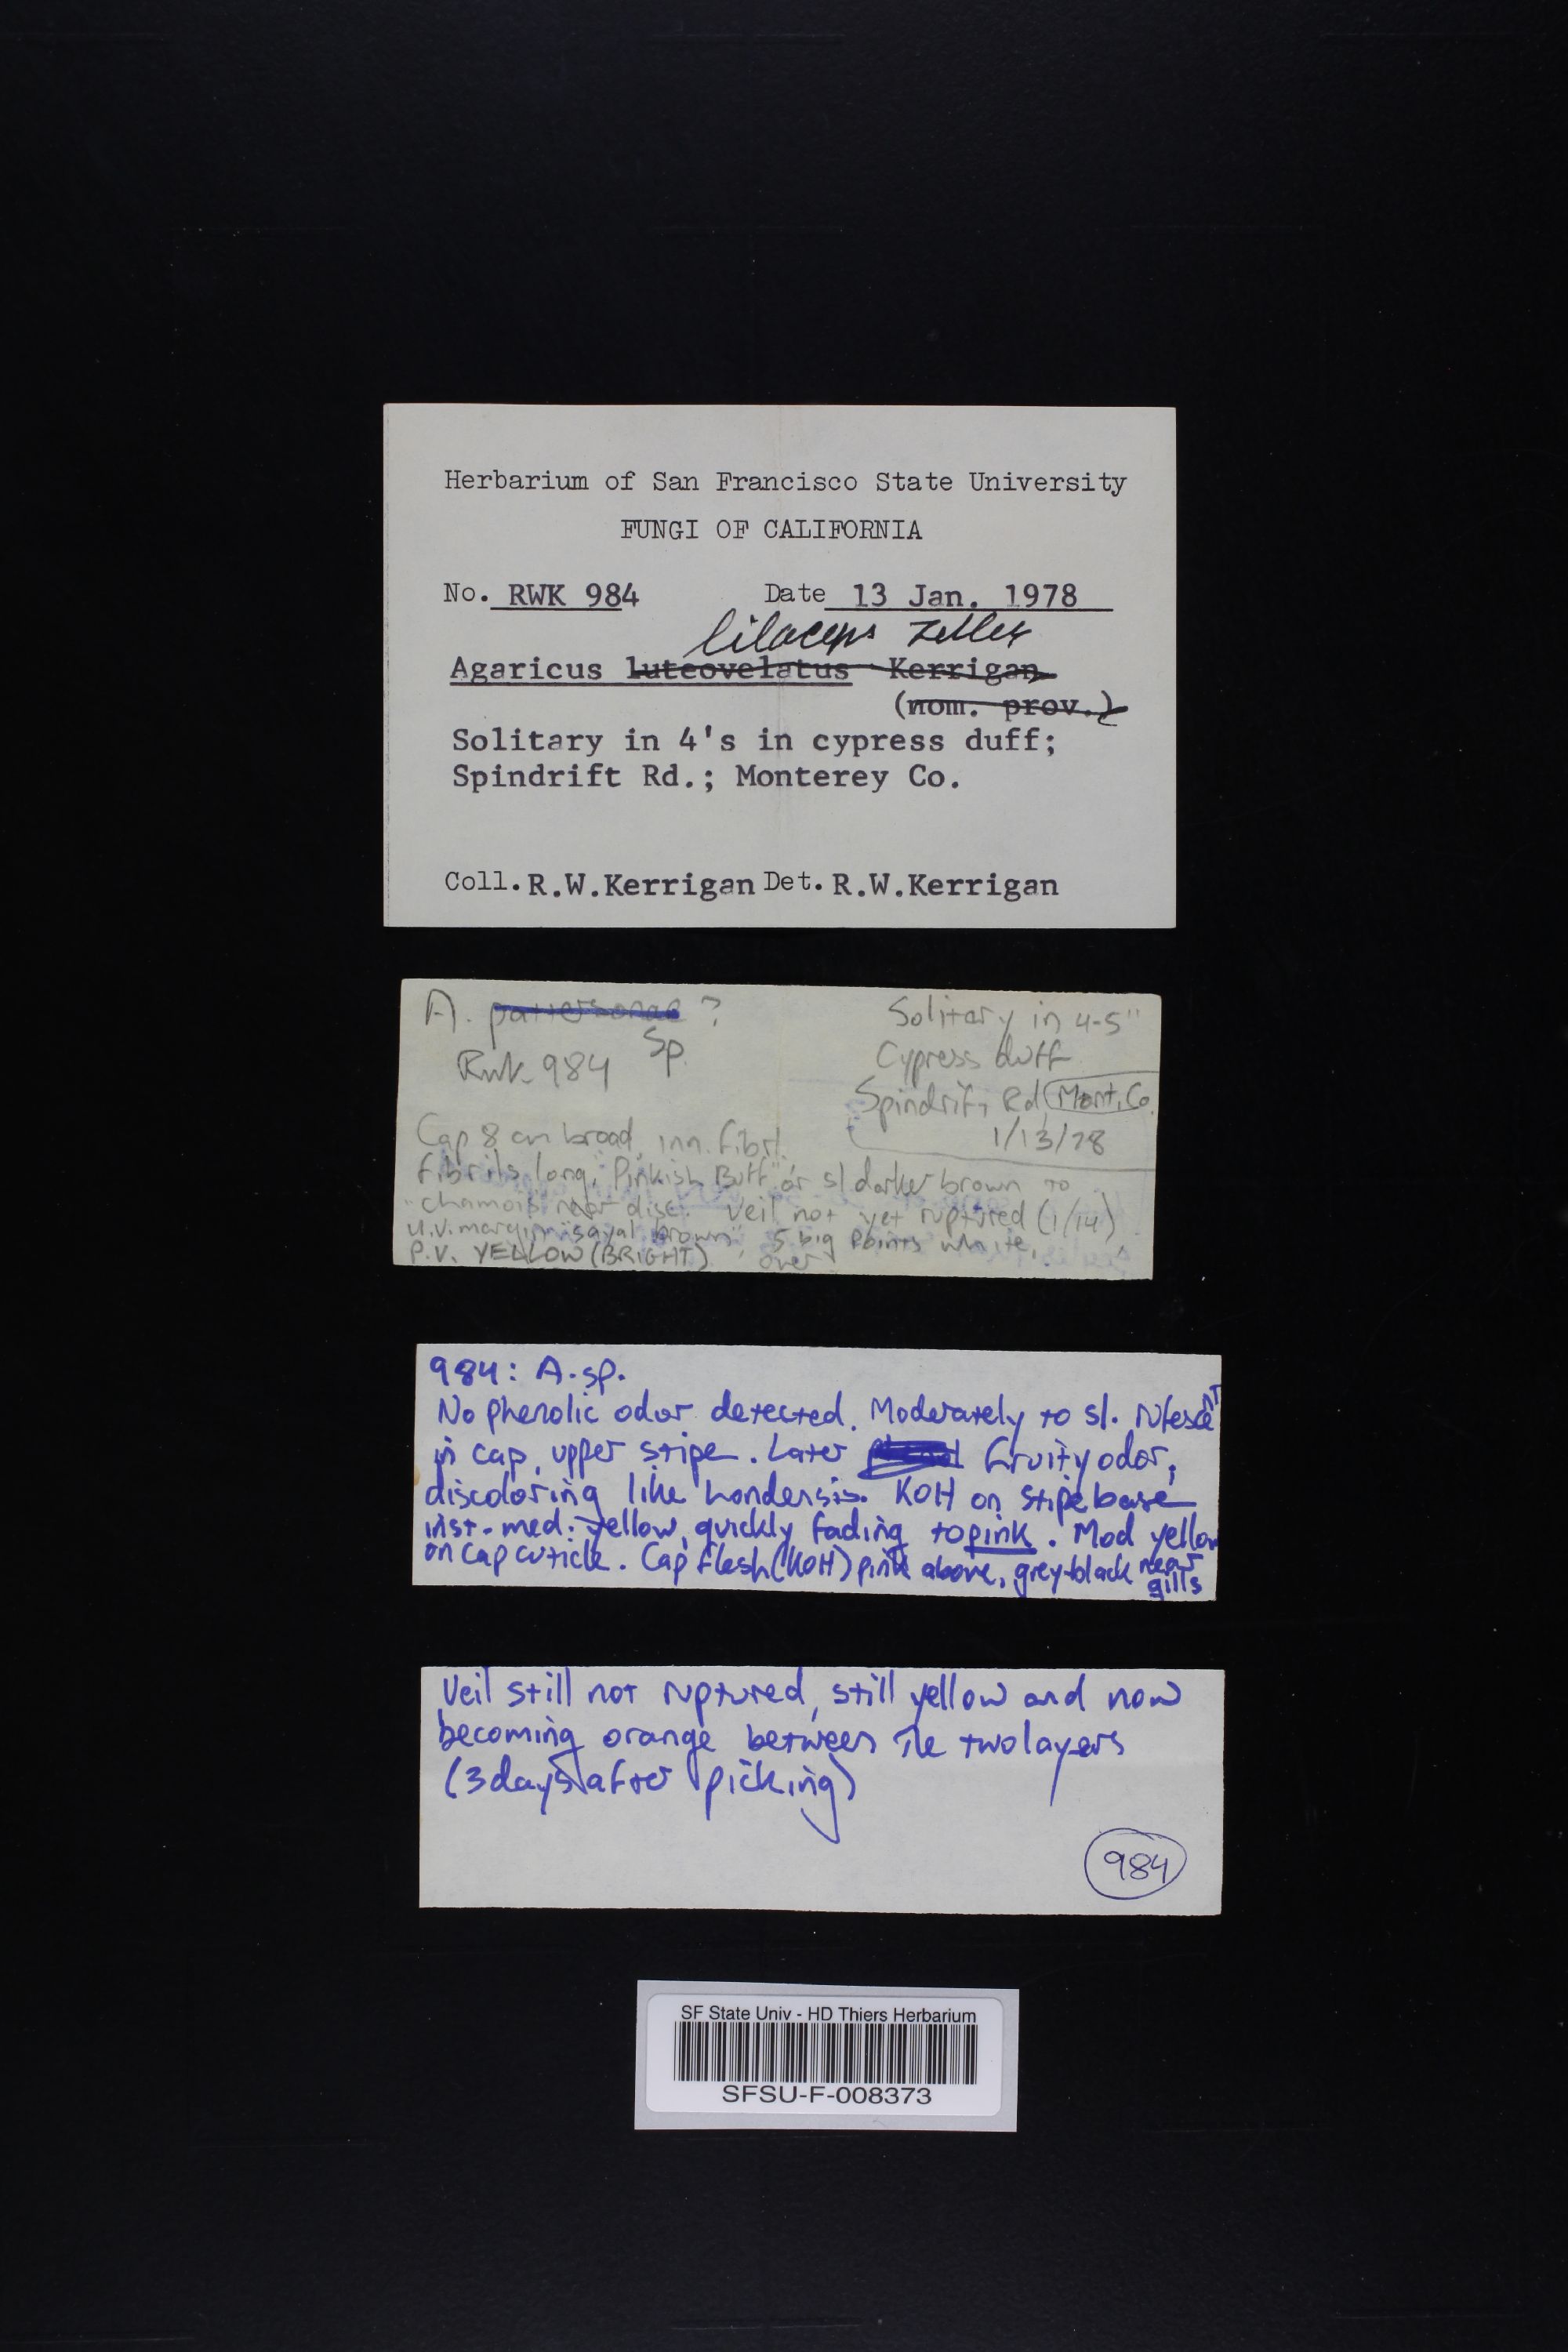 Herbarium of San Francisco State University
FUNGI OF CALIFORNIA
No. RWK 984 Date 13 Jan. 1978
lilaceps Zeller
Agaricus luteovelatus Kerrigan
(nom. prov.)
Solitary in 4's in cypress duff;
Spindrift Rd.; Monterey Co.
Coll. R.W.Kerrigan Det. R.W.Kerrigan
A. pattersonae ?
Sp.
RWK 984
Solitary in 4-5"
Cypress duff
Spindrift Rd Mont. Co.
1/13/78
Cap 8 cm broad, inn. fibril.
fibrils long, "Pinkish Buff" or sl darker brown to
"chamois" near disc. Veil not yet ruptured (1/14),
U.V. margin "sayal brown", 5 big points white,
P.V. YELLOW (BRIGHT) over
984: A. sp.
No phenolic odor detected. Moderately to sl. rufescent
in cap, upper stipe. Later fruity odor,
discoloring like hondensis. KOH on stipe base
inst. med. yellow, quickly fading to pink. Mod yellow
on cap cuticle. Cap flesh (KOH) pink above, grey-black near
gills
Veil still not ruptured, still yellow and now
becoming orange between the two layers
(3 days after picking)
984
SF State Univ - HD Thiers Herbarium
SFSU-F-008373